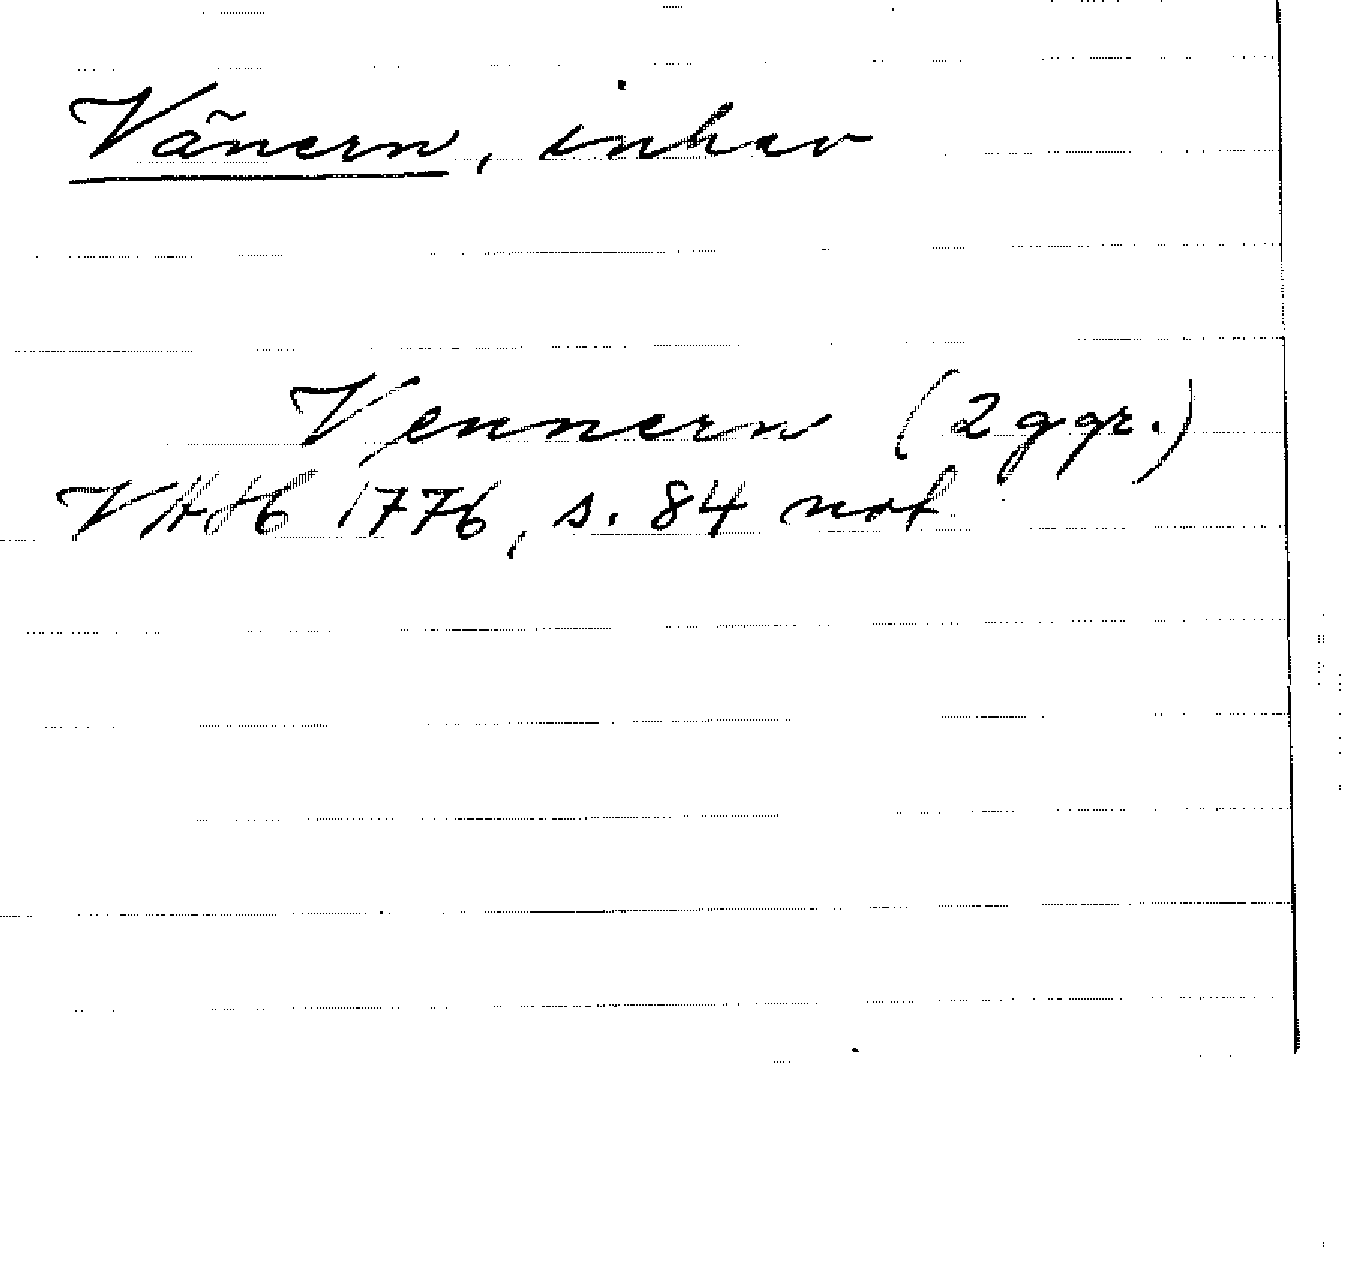 Vänern, inhav
Vennern (2 ggr.)
VAH 1776, s. 84 not